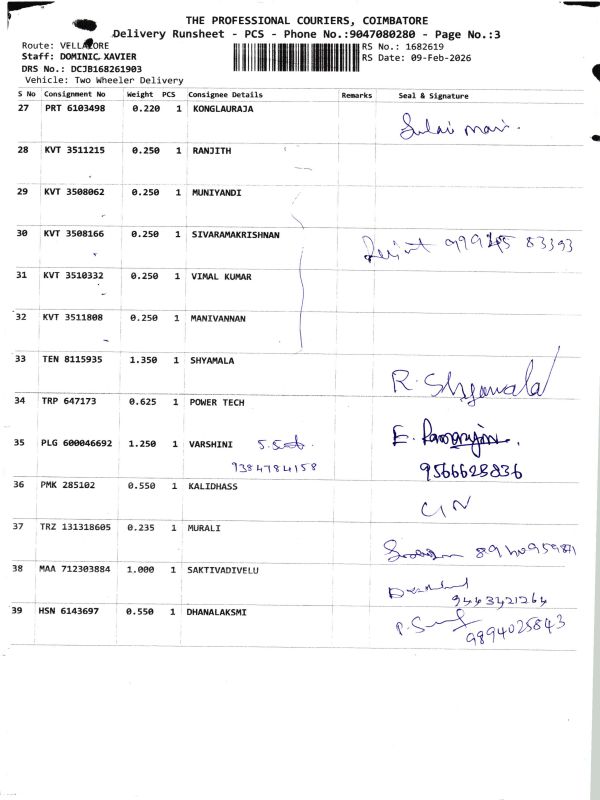 THE PROFESSIONAL COURIERS, COIMBATORE
Delivery Runsheet - PCS - Phone No.:9047080280 - Page No.:3
Route: VELLALORE
RS No.: 1682619
Staff: DOMINIC XAVIER
RS Date: 09-Feb-2026
DRS No.: DCJB168261903
Vehicle: Two Wheeler Delivery
S No Consignment No Weight PCS Consignee Details Remarks Seal & Signature
27 PRT 6103498 0.220 1 KONGLAURAJA
28 KVT 3511215 0.250 1 RANJITH
29 KVT 3508062 0.250 1 MUNIYANDI
30 KVT 3508166 0.250 1 SIVARAMAKRISHNAN
31 KVT 3510332 0.250 1 VIMAL KUMAR
32 KVT 3511808 0.250 1 MANIVANNAN
33 TEN 8115935 1.350 1 SHYAMALA R. Shyamala
34 TRP 647173 0.625 1 POWER TECH
35 PLG 600046692 1.250 1 VARSHINI
9384784158 9566628836
36 PMK 285102 0.550 1 KALIDHASS
37 TRZ 131318605 0.235 1 MURALI
38 MAA 712303884 1.000 1 SAKTIVADIVELU
9443421264
39 HSN 6143697 0.550 1 DHANALAKSMI
9894025843